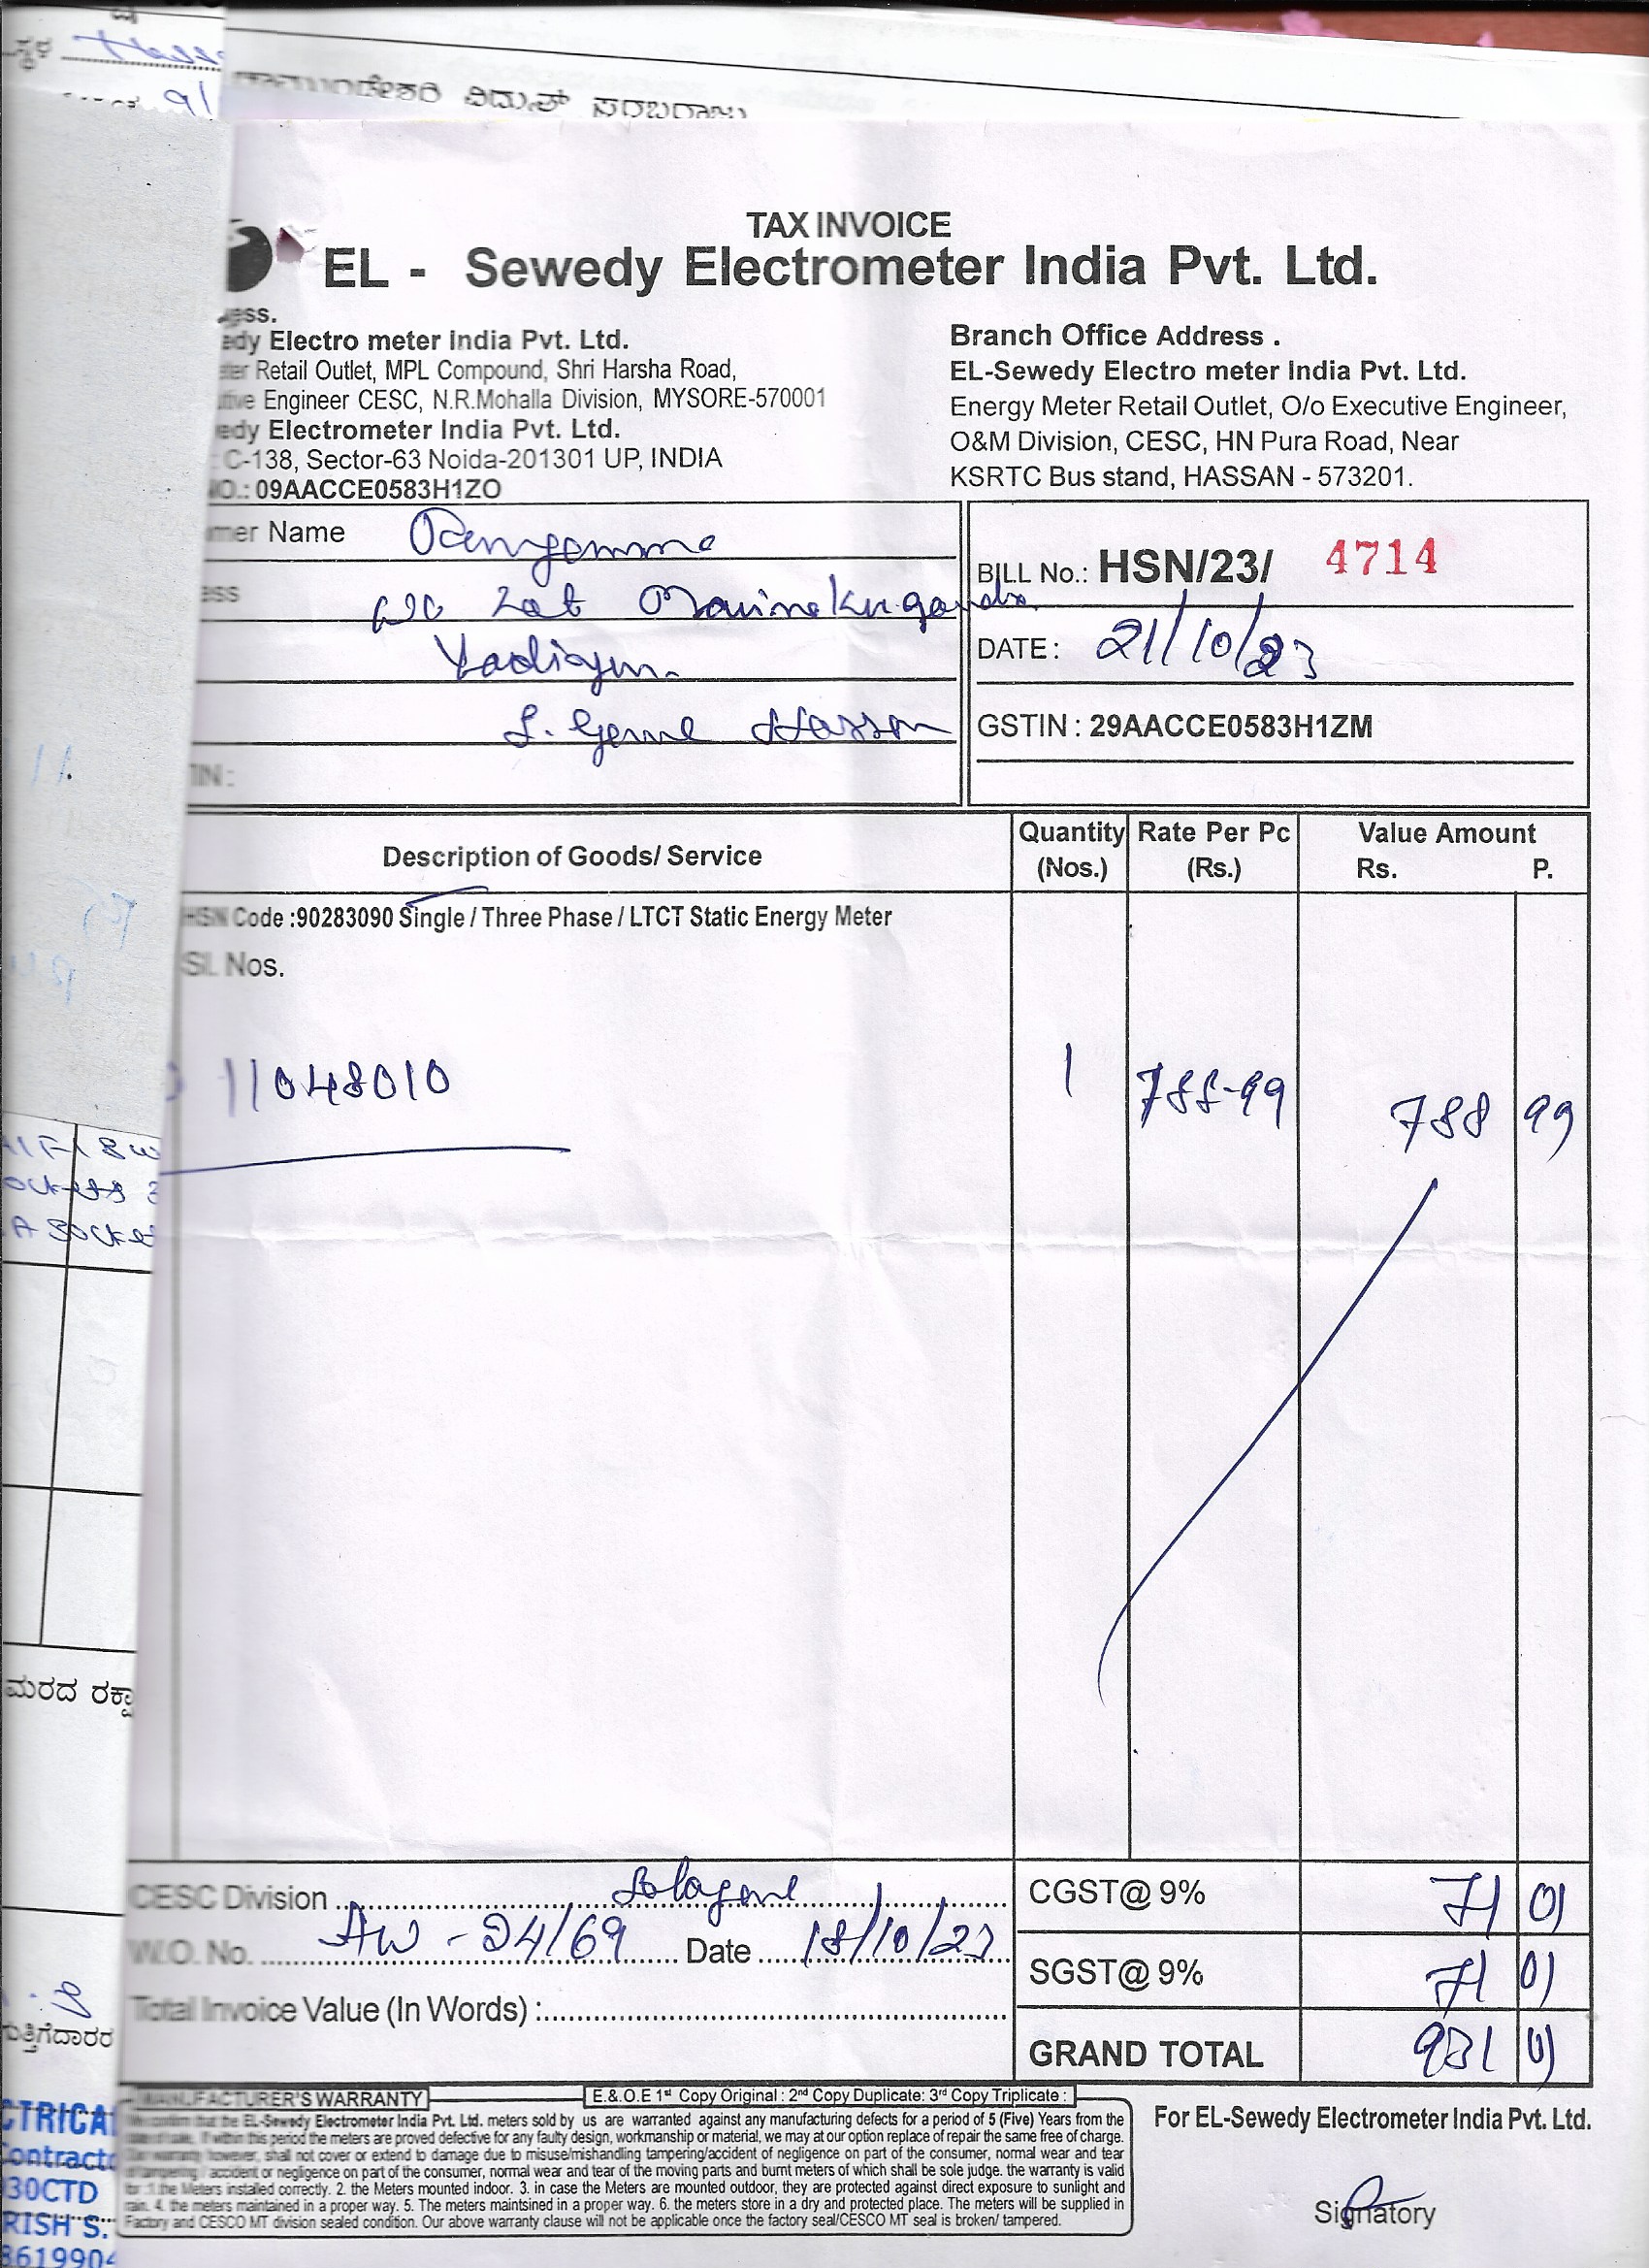 ವಿದ್ಯುತ್ ಸರಬರಾಜು
TAX INVOICE
EL - Sewedy Electrometer India Pvt. Ltd.
Electro meter India Pvt. Ltd.
Retail Outlet, MPL Compound, Shri Harsha Road,
Engineer CESC, N.R.Mohalla Division, MYSORE-570001
Electrometer India Pvt. Ltd.
C-138, Sector-63 Noida-201301 UP, INDIA
09AACCE0583H1ZO
Branch Office Address .
EL-Sewedy Electro meter India Pvt. Ltd.
Energy Meter Retail Outlet, O/o Executive Engineer,
O&M Division, CESC, HN Pura Road, Near
KSRTC Bus stand, HASSAN - 573201.
Name
Hassan
BILL No.: HSN/23/ 4714
DATE : 21/10/23
GSTIN : 29AACCE0583H1ZM
Description of Goods/ Service
Quantity (Nos.)
Rate Per Pc (Rs.)
Value Amount
Rs. P.
HSN Code :90283090 Single / Three Phase / LTCT Static Energy Meter
Sl. Nos.
11048010 1 788-99 788 99
CESC Division
W.O. No. AW - 24/69 Date 18/10/23
Total Invoice Value (In Words) :
CGST@ 9% 71 01
SGST@ 9% 71 01
GRAND TOTAL 931 01
MANUFACTURER'S WARRANTY
E.& O.E 1st Copy Original : 2nd Copy Duplicate: 3rd Copy Triplicate :
We confirm that the EL-Sewedy Electrometer India Pvt. Ltd. meters sold by us are warranted against any manufacturing defects for a period of 5 (Five) Years from the
date of sale. If within this period the meters are proved defective for any faulty design, workmanship or material, we may at our option replace of repair the same free of charge.
Our warranty however, shall not cover or extend to damage due to misuse/mishandling tampering/accident of negligence on part of the consumer, normal wear and tear
of tampering / accident or negligence on part of the consumer, normal wear and tear of the moving parts and burnt meters of which shall be sole judge. the warranty is valid
for :1 the Meters installed correctly. 2. the Meters mounted indoor. 3. in case the Meters are mounted outdoor, they are protected against direct exposure to sunlight and
rain. 4. the meters maintained in a proper way. 5. The meters maintsined in a proper way. 6. the meters store in a dry and protected place. The meters will be supplied in
Factory and CESCO MT division sealed condition. Our above warranty clause will not be applicable once the factory seal/CESCO MT seal is broken/ tampered.
For EL-Sewedy Electrometer India Pvt. Ltd.
Signatory
ಮರದ
30CTD
RISH S.